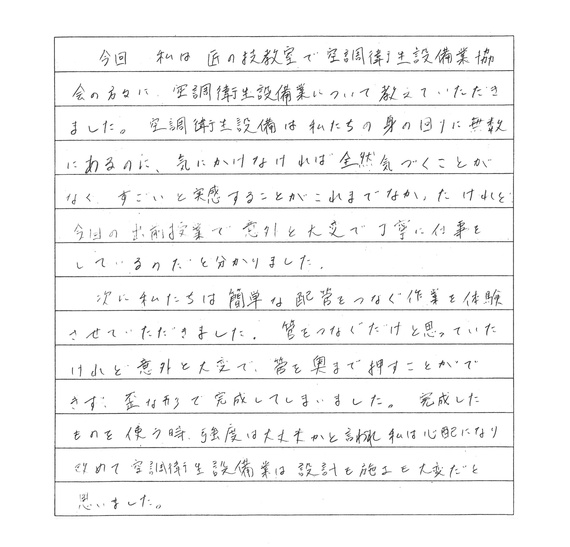 今回 私は匠の技教室で空調衛生設備業協
会の方々に、空調衛生設備業について教えていただき
ました。空調衛生設備は私たちの身の回りに無数
にあるのに、気にかけなければ全然気づくことが
なく、すごいと実感することがこれまでなかったけれど
今回の出前授業で意外と大変で丁寧に仕事を
しているのだと分かりました。
次に私たちは簡単な配管をつなぐ作業を体験
させていただきました。管をつなぐだけと思っていた
けれど意外と大変で、管を奥まで押すことがで
きず、歪な形で完成してしまいました。完成した
ものを使う時、強度は大丈夫かと言われ私は心配になり
改めて空調衛生設備業は設計も施工も大変だと
思いました。